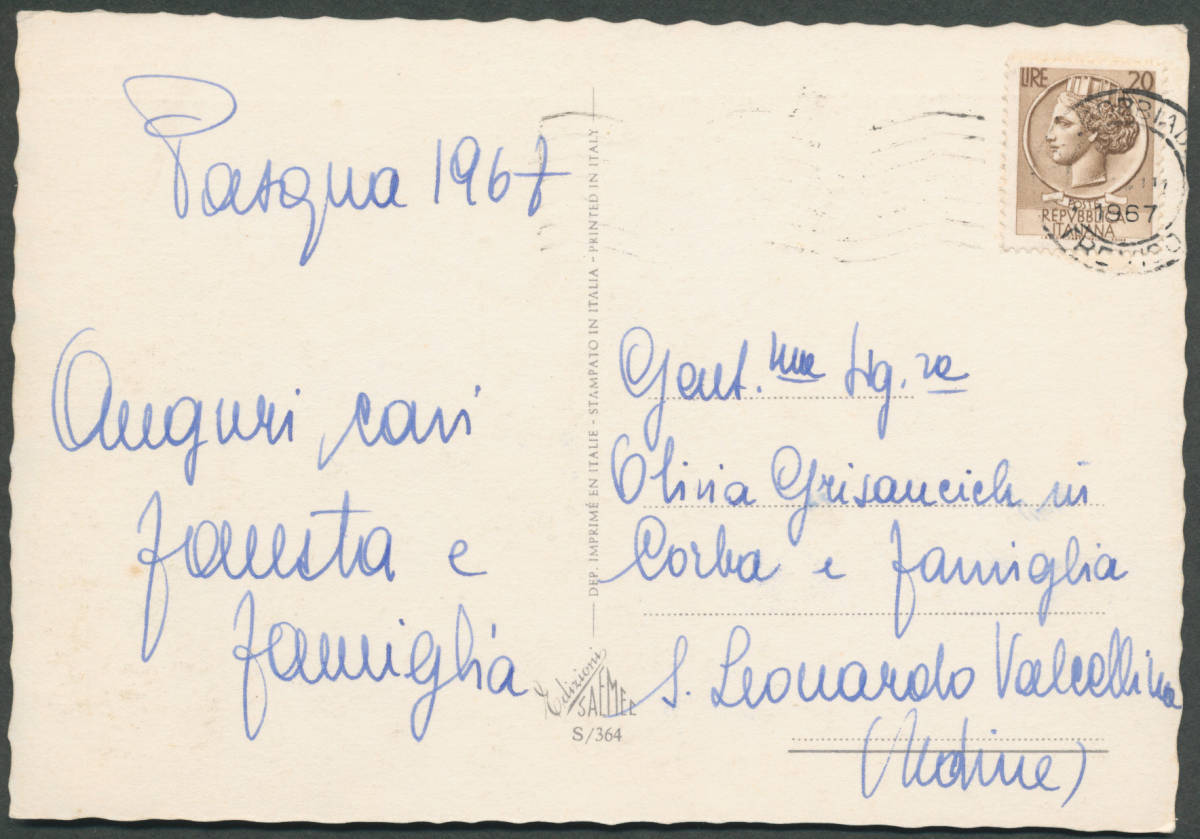 Pasqua 1967
Auguri cari
Fausta e
famiglia
DEP. IMPRIMÉ EN ITALIE - STAMPATO IN ITALIA - PRINTED IN ITALY
Edizioni
SAEMEC
S/364
LIRE 20
POSTE
REPVBBLICA
ITALIANA
1967
TREVISO
Gent.ma Sig.ra
Olivia Grisancich in
Corba e famiglia
S. Leonardo Valcellina
(Udine)